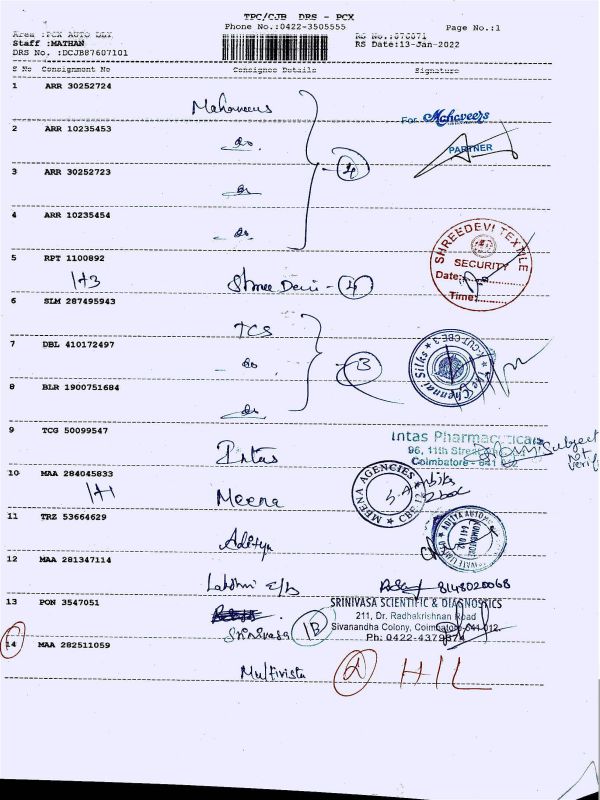 TPC/CJB DRS - PCX
Phone No.:0422-3505555
Page No.:1
Area :PCX AUTO DLY
Staff :MATHAN
DRS No. :DCJB87607101
RS Date:13-Jan-2022
S No Consignment No Consignee Details Signature
1 ARR 30252724
Mahaveers
For Mahaveers
2 ARR 10235453
do.
PARTNER
3 ARR 30252723
do
4
4 ARR 10235454
do
5 RPT 1100892
1+3
Shree Devi - 4
SHREEDEVI TEXTILE
SECURITY
Date:
Time:
6 SLM 287495943
TCS
7 DBL 410172497
do
3
The Chennai Silks
8 BLR 1900751684
do
9 TCG 50099547
Intas
Intas Pharmaceuticals
96, 11th Street
Coimbatore - 641
Subject
10 MAA 284045833
1+1
Meena
MEENA AGENCIES
CBE
11 TRZ 53664629
Aditya
12 MAA 281347114
Lakshmi
8148020068
13 PON 3547051
Srinivasa
SRINIVASA SCIENTIFIC & DIAGNOSTICS
211, Dr. Radhakrishnan Road
Sivanandha Colony, Coimbatore-641 012.
Ph: 0422-4379
14 MAA 282511059
Multivista